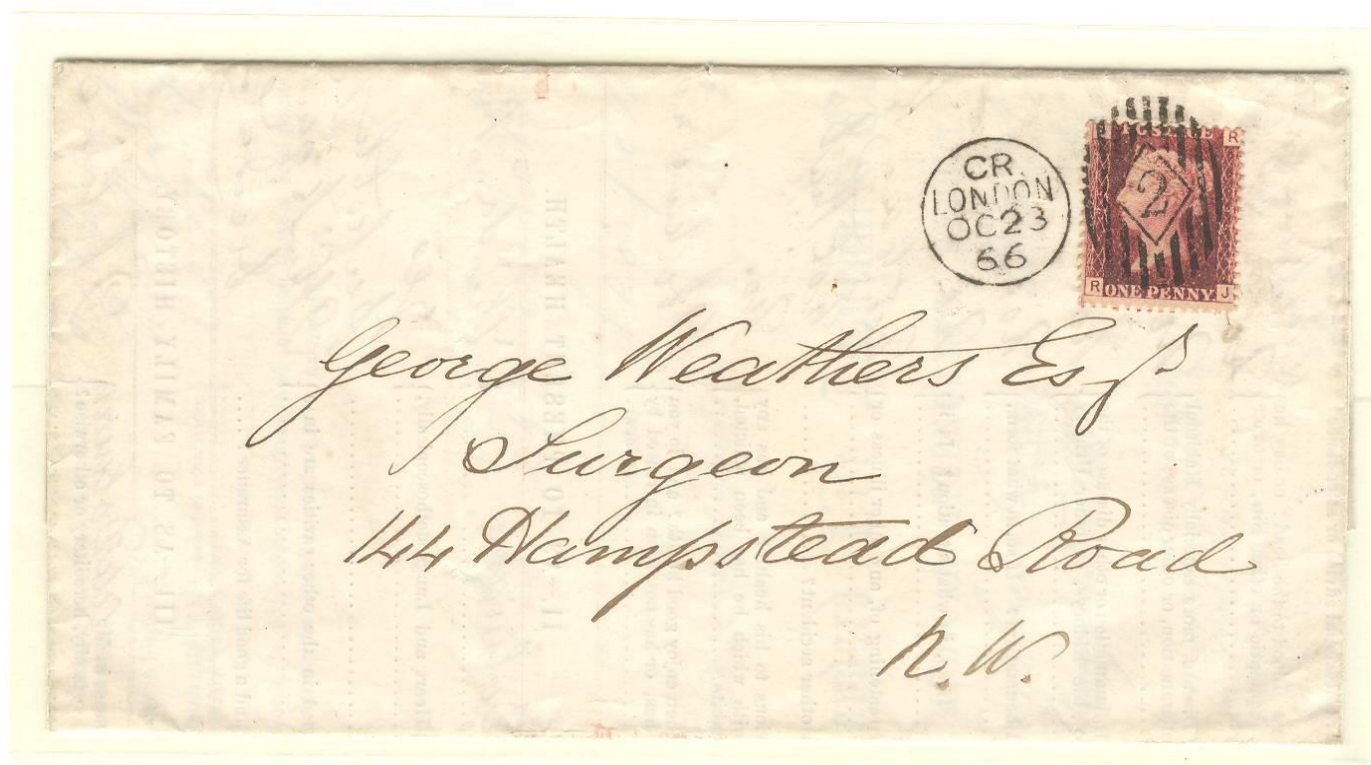 CR.
LONDON
OC23
66
2
R
R ONE PENNY J
George Weathers Esqr
Surgeon
144 Hampstead Road
N.W.